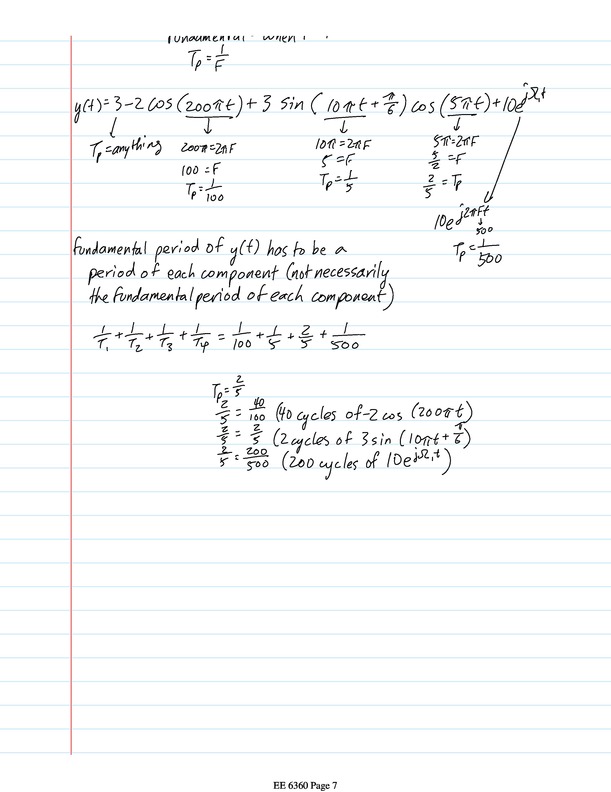 T_p = 1/F
y(t) = 3 - 2 cos (200πt) + 3 sin (10πt + π/6) cos (5πt) + 10e^{jΩ₁t}
T_p = anything 200π = 2πF 10π = 2πF 5π = 2πF
100 = F 5 = F 5/2 = F
T_p = 1/100 T_p = 1/5 2/5 = T_p
10e^{j2πFt}
500
T_p = 1/500
fundamental period of y(t) has to be a
period of each component (not necessarily
the fundamental period of each component)
1/T₁ + 1/T₂ + 1/T₃ + 1/T₄ = 1/100 + 1/5 + 2/5 + 1/500
T_p = 2/5
2/5 = 40/100 (40 cycles of -2 cos (200πt)
2/5 = 2/5 (2 cycles of 3 sin (10πt + π/6)
2/5 = 200/500 (200 cycles of 10e^{jΩ₁t})
EE 6360 Page 7